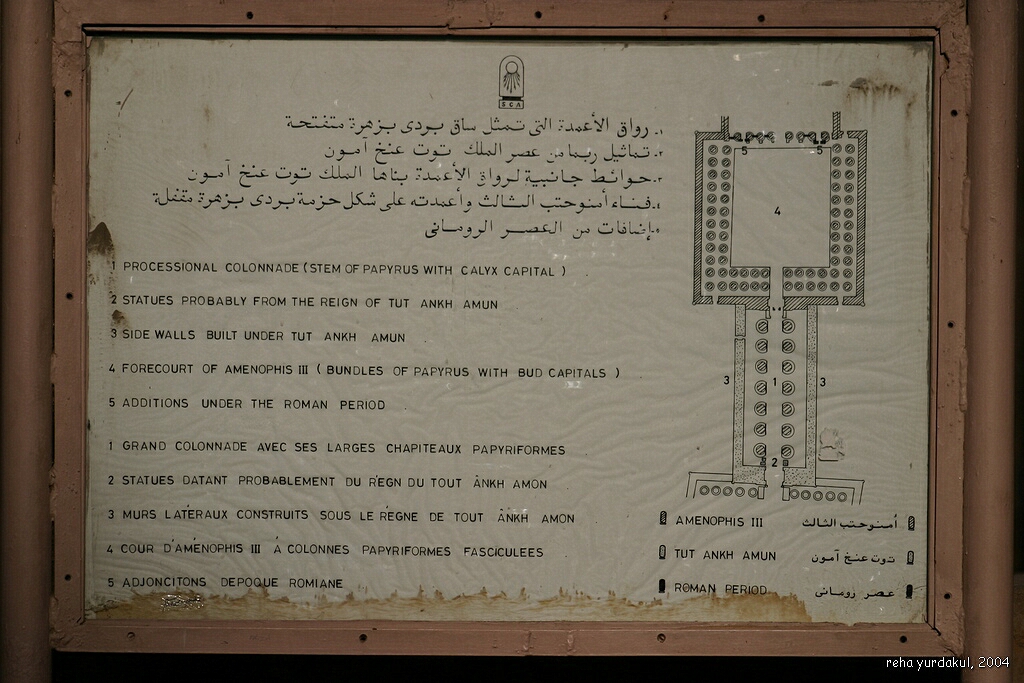 SCA
١- رواق الأعمدة التى تمثل ساق بردى بزهرة متفتحة
٢- تماثيل ربما من عصر الملك توت عنخ آمون
٣- حوائط جانبية لرواق الأعمدة بناها الملك توت عنخ آمون
٤- فناء أمنوحتب الثالث وأعمدته على شكل حزمة بردى بزهرة مقفلة
٥- إضافات من العصر الرومانى
1 PROCESSIONAL COLONNADE (STEM OF PAPYRUS WITH CALYX CAPITAL )
2 STATUES PROBABLY FROM THE REIGN OF TUT ANKH AMUN
3 SIDE WALLS BUILT UNDER TUT ANKH AMUN
4 FORECOURT OF AMENOPHIS III ( BUNDLES OF PAPYRUS WITH BUD CAPITALS )
5 ADDITIONS UNDER THE ROMAN PERIOD
1 GRAND COLONNADE AVEC SES LARGES CHAPITEAUX PAPYRIFORMES
2 STATUES DATANT PROBABLEMENT DU RÉGN DU TOUT ÂNKH AMON
3 MURS LATÉRAUX CONSTRUITS SOUS LE RÉGNE DE TOUT ÂNKH AMON
4 COUR D'AMÉNOPHIS III À COLONNES PAPYRIFORMES FASCICULEES
5 ADJONCITONS DEPOQUE ROMIANE
5 5
4
3 1 3
2
AMENOPHIS III أمنوحتب الثالث
TUT ANKH AMUN توت عنخ آمون
ROMAN PERIOD عصر رومانى
reha yurdakul, 2004